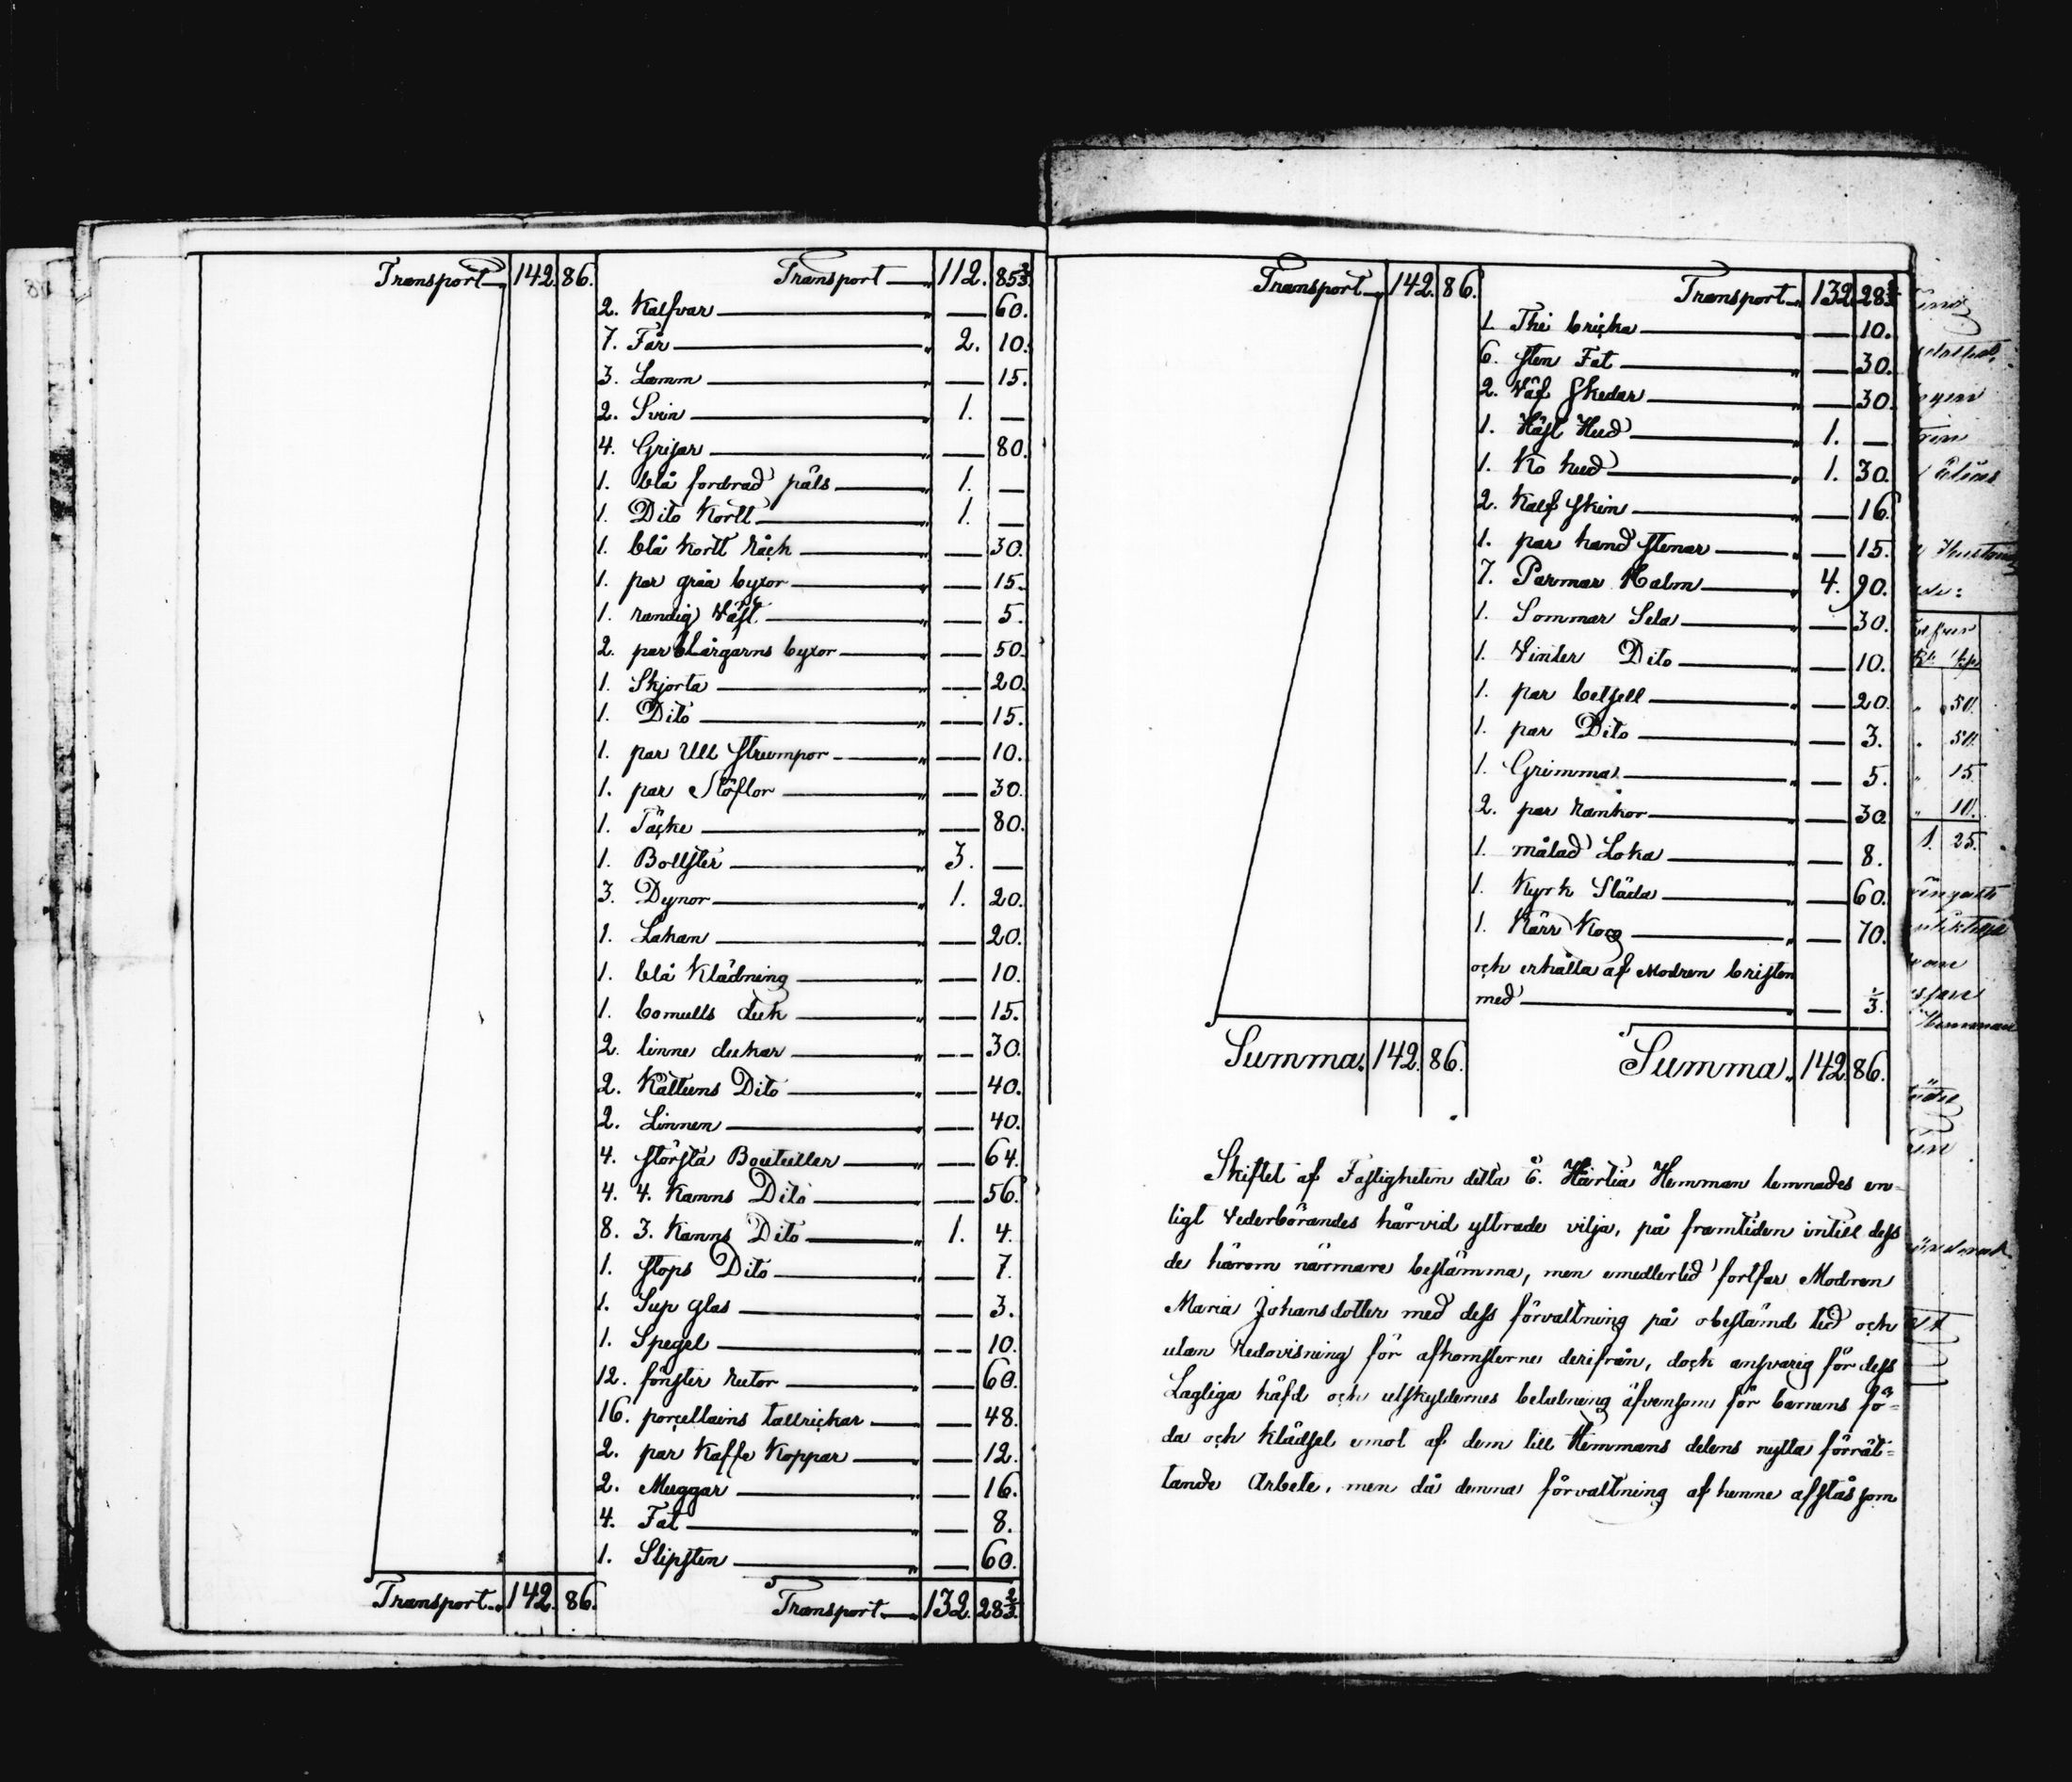 Transport 142. 86. Transport 112. 85 2/3.
2. Kalfvar — 60.
7. Får 2. 10.
3. Lamm — 15.
2. Svin 1. —
4. Grisar — 80.
1. blå fordrad päls 1. —
1. Dito Kortt 1. —
1. blå Kortt Råck — 30.
1. par gråa byxor — 15.
1. randig Väst — 5.
2. par blårgarns byxor — 50.
1. Skjorta — 20.
1. Dito — 15.
1. par Ull strumpor — 10.
1. par Stöflor — 30.
1. Täcke — 80.
1. Bollster 3. —
3. Dynor 1. 20.
1. Lakan — 20.
1. blå Klädning — 10.
1. bomulls duk — 15.
2. linne dukar — 30.
2. Kattuns Dito — 40.
2. Linnen — 40.
4. största Bouteiller — 64.
4. 4. Kanns Dito — 56.
8. 3. Kanns Dito 1. 4.
1. stops Dito — 7.
1. Sup glas — 3.
1. Spegel — 10.
12. fönster rutor — 60.
16. porcellains tallrickar — 48.
2. par Kaffe Koppar — 12.
2. Muggar — 16.
4. Fat — 8.
1. Slipsten — 60.
Transport 142. 86. Transport 132. 28 2/3.
Transport 142. 86. Transport 132. 28 2/3
1. Thé bricka — 10.
6. sten Fat — 30.
2. Väf skedar — 30.
1. Häst Hud 1. —
1. Ko hud 1. 30.
2. Kalf skin — 16.
1. par hand stenar — 15.
7. Parmar Halm 4. 90.
1. Sommar Sela — 30.
1. Vinter Dito — 10.
1. par betsell — 20.
1. par Dito — 3.
1. Grimma — 5.
2. par rankor — 30.
1. målad Loka — 8.
1. Kyrk Släda — 60.
1. Kärr Korg — 70.
och erhålla af Modren bristen
med — 1/3.
Summa. 142. 86. Summa. 142. 86.
Skiftet af Fastigheten detta Ö. Härtia Hemman lemnades en-
ligt Vederbörandes härvid yttrade vilja, på framtiden intill dess
de härom närmare bestämma, men emedlertid fortfar Modren
Maria Johansdotter med dess förvaltning på obestämd tid och
utan Redovisning för afkomsterne derifrån, dock ansvarig för dess
Lagliga häfd och utskyldernes betalning äfvensom för barnens fö-
da och Klädsel emot af dem till Hemmans delens nytta förrät-
tande Arbete, men då denna förvaltning af henne afstås som
50.
50.
15.
10.
1. 25.